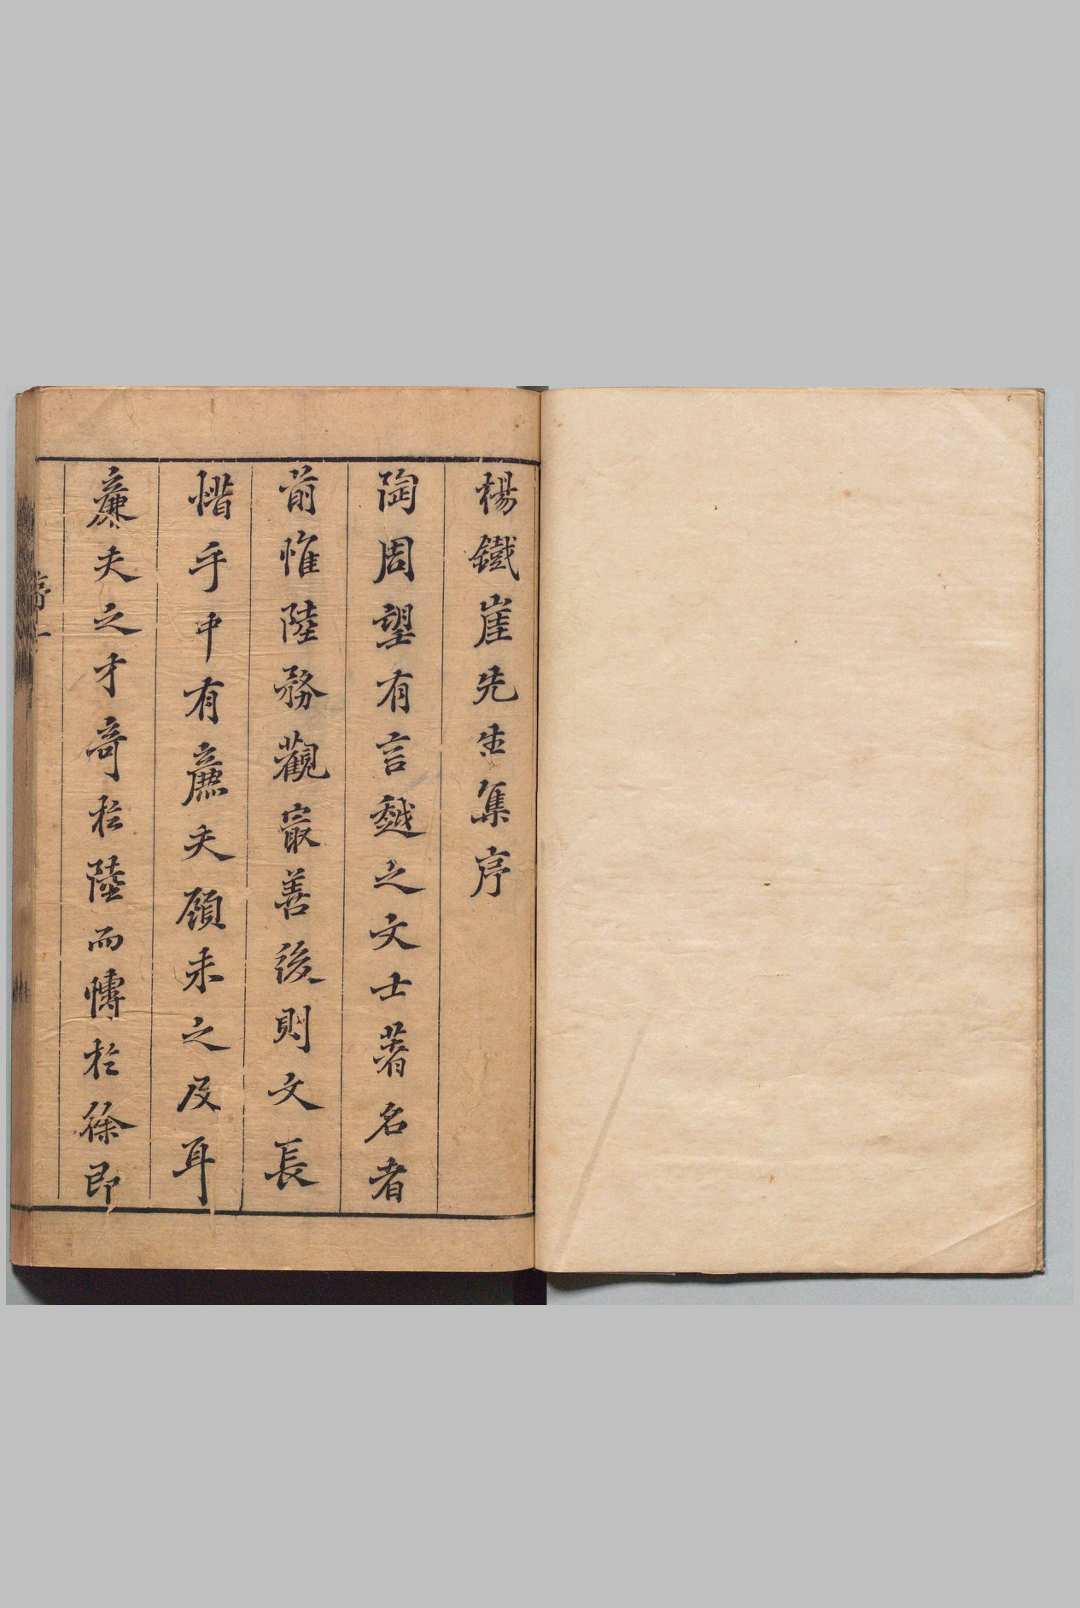 楊鐵崖先生集序
陶周望有言越之文士著名者
前惟陸務觀㝡善後則文長
惜乎中有廉夫顧未之及耳
廉夫之才奇於陸而博於徐即
序一